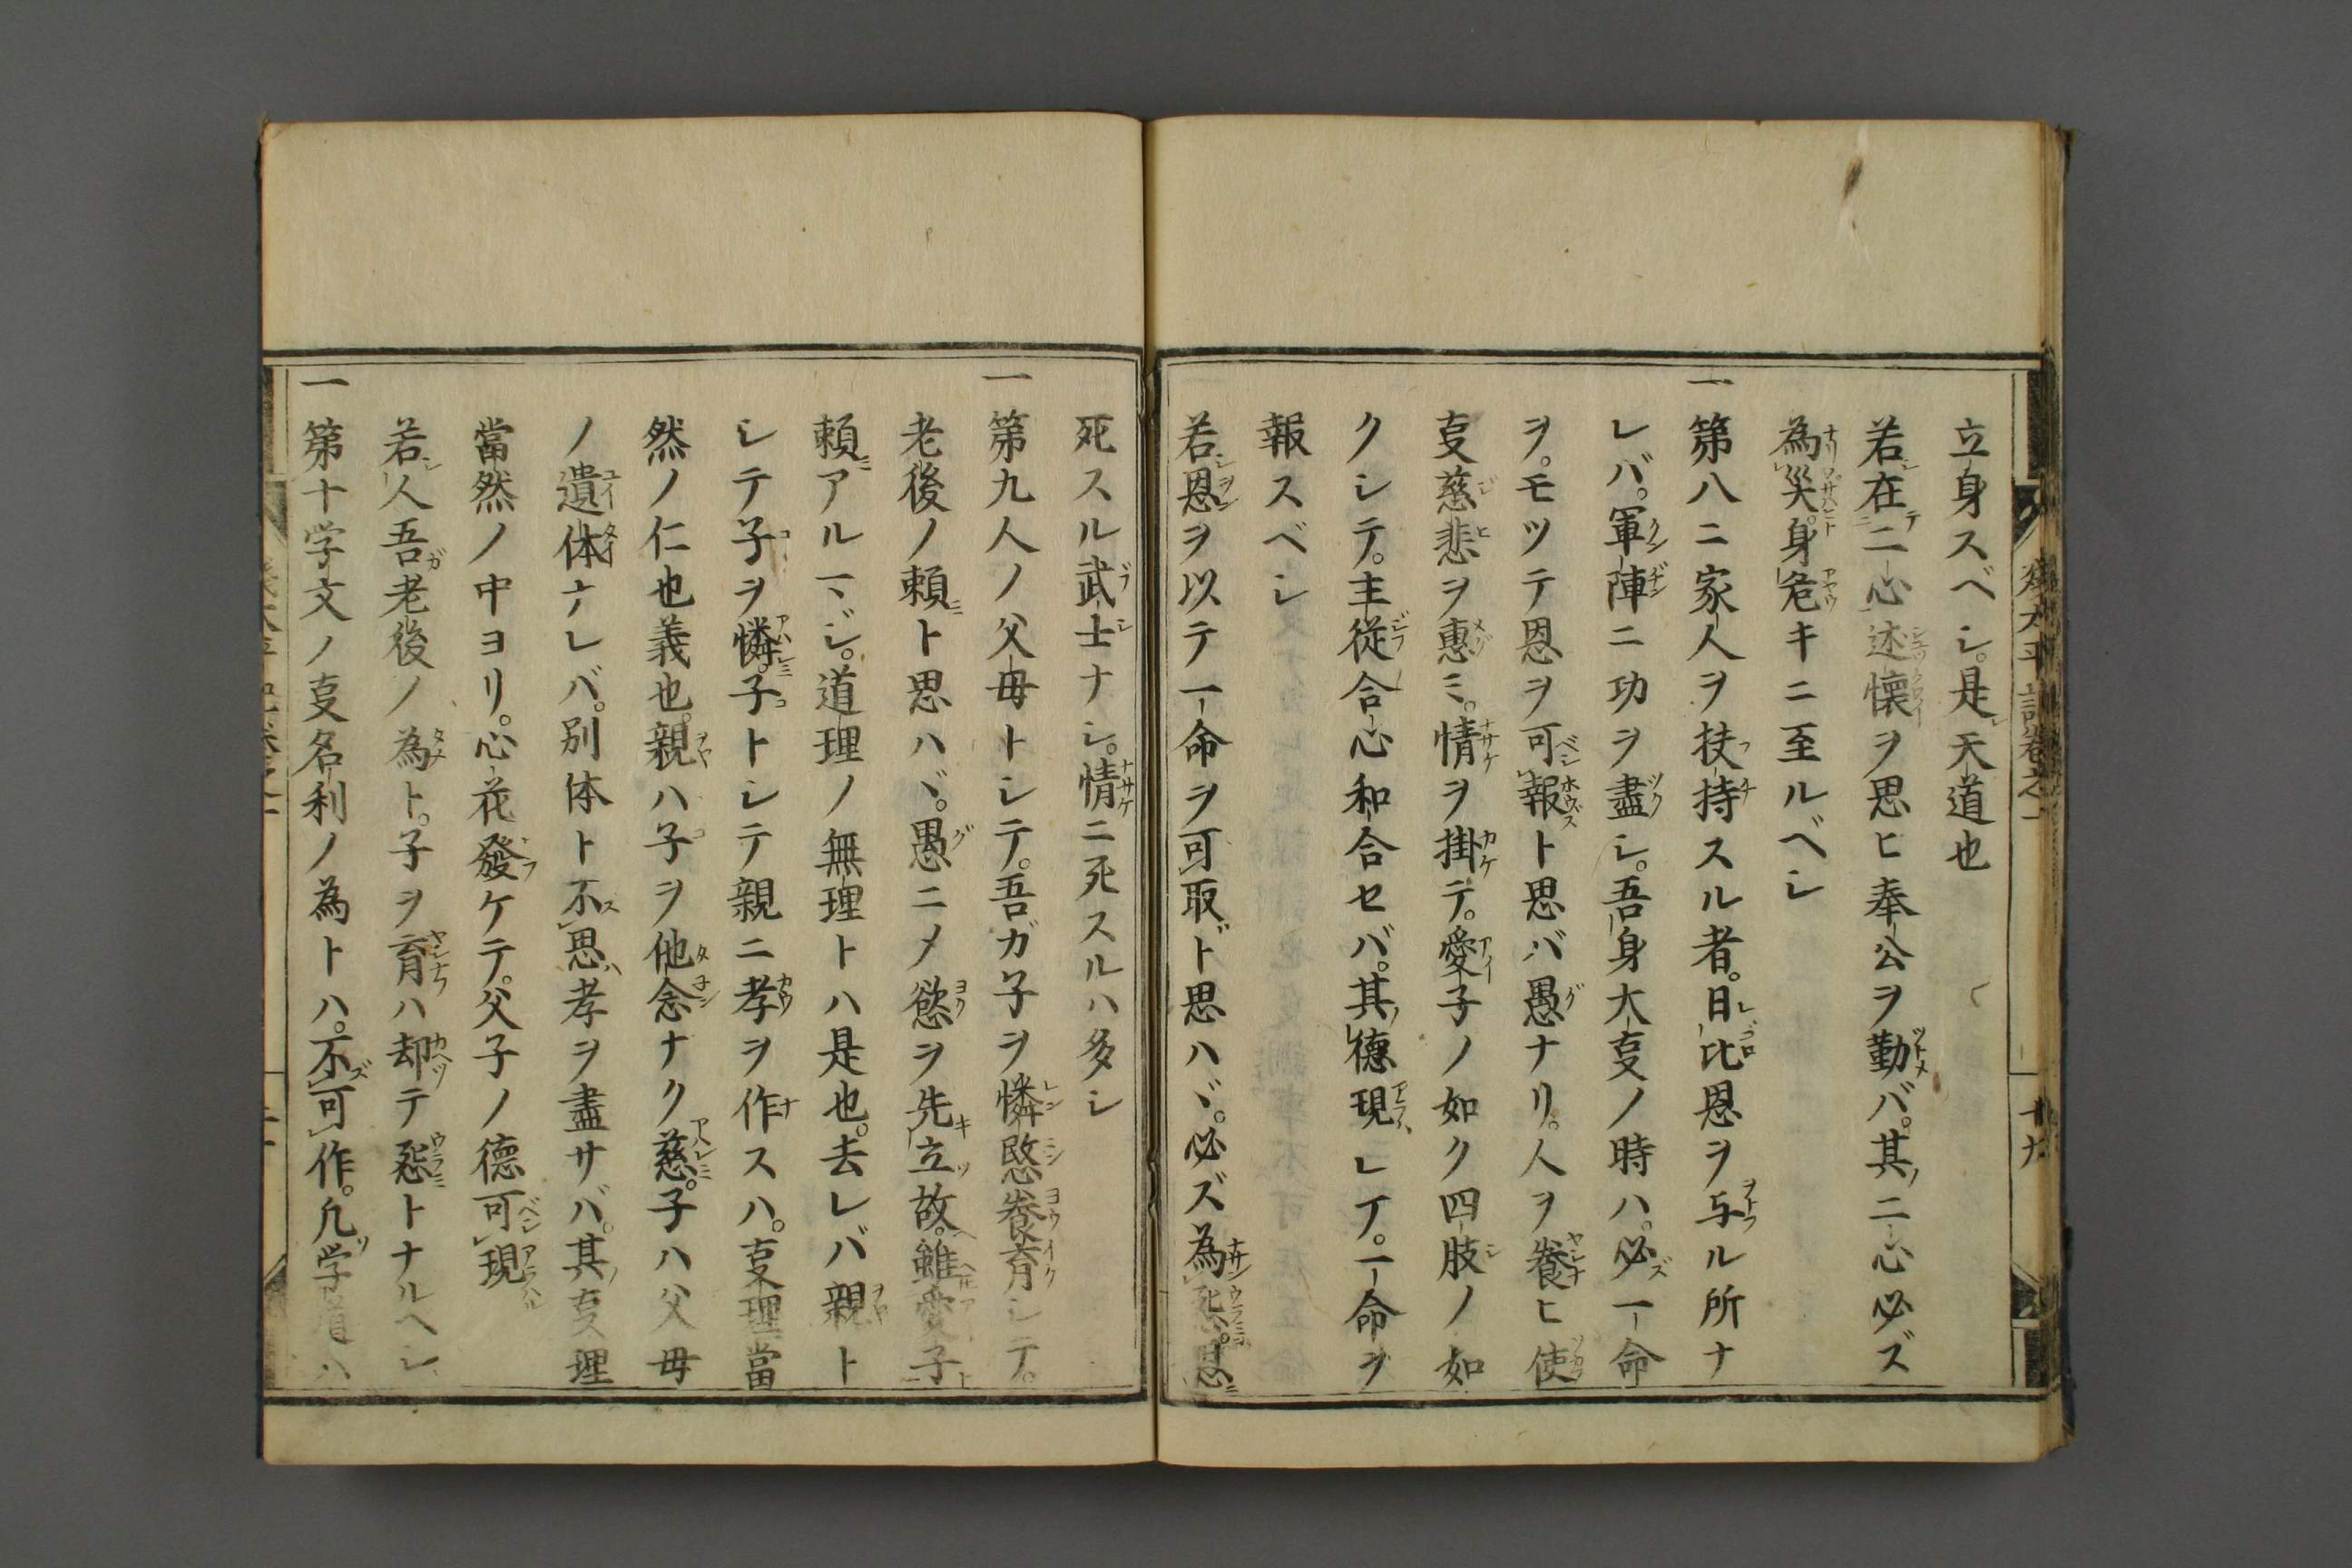 立身スベシ。是レ天道也
若シ在テニ二心述懐ヲ思ヒ奉公ヲ勤バ。其ノ二心必ズ
為災。身危キニ至ルベシ
一第八ニ家人ヲ扶持スル者。日比恩ヲ与ル所ナ
レバ。軍陣ニ功ヲ盡シ。吾身大叓ノ時ハ。必ズ一命
ヲ。モツテ恩ヲ可報ト思バ愚ナリ。人ヲ養ヒ使
叓慈悲ヲ惠ミ。情ヲ掛テ。愛子ノ如ク四肢ノ如
クシテ。主従合心和合セバ。其ノ徳現レテ。一命ヲ
報スベシ
若シ恩ヲ以テ一命ヲ可取ト思ハヾ。必ズ為
死スル武士ナシ。情ニ死スルハ多シ
一第九人ノ父母トシテ。吾ガ子ヲ憐愍養育シテ。
老後ノ頼ミト思ハヾ。愚ニメ慾ヲ先立故。雖愛子
頼ミアルマジ。道理ノ無理トハ是也。去レバ親ト
シテ子ヲ憐ミ。子トシテ親ニ孝ヲ作スハ。叓理當
然ノ仁也義也。親ハ子ヲ他念ナク慈ミ。子ハ父母
ノ遺体ナレバ。別体ト不思ハ孝ヲ盡サバ。其ノ叓理
當然ノ中ヨリ。心花發ケテ。父子ノ徳可現
若シ人吾ガ老後ノ為ト。子ヲ育ハ却テ怨トナルヘシ
一第十学文ノ叓名利ノ為トハ。不可作。凡ソ学道ハ
十九